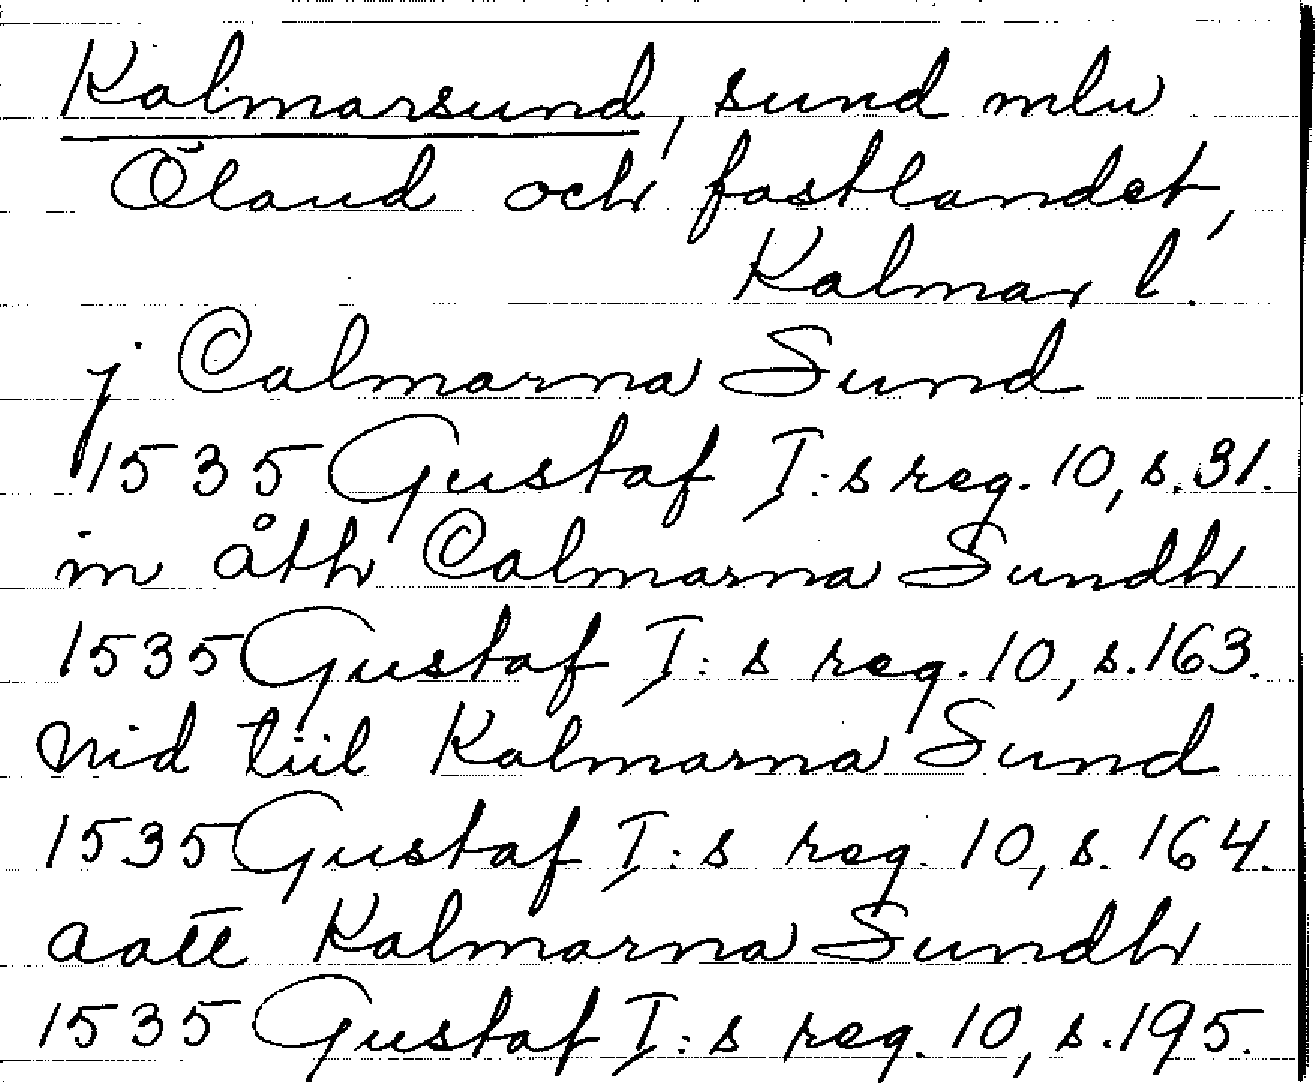 Kalmarsund, sund mlw
Öland och fastlandet,
Kalmar l.
j Calmarna Sund
1535 Gustaf I:s reg. 10, s. 31.
in åth Calmarna Sundh
1535 Gustaf I:s reg. 10, s. 163.
nid tiil Kalmarna Sund
1535 Gustaf I:s reg. 10, s. 164.
aatt Kalmarna Sundh
1535 Gustaf I:s reg. 10, s. 195.